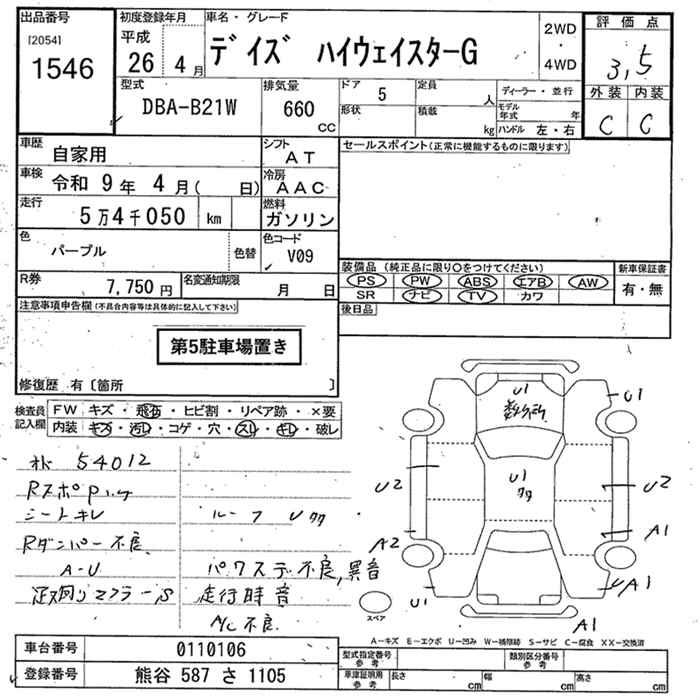 出品番号
[2054]
1546
初度登録年月
平成
26 4月
車名・グレード
デイズ ハイウェイスターG
2WD
・
4WD
評価点
3,5
外装 内装
C C
型式
DBA-B21W
排気量
660
CC
ドア
5
形状
定員
人
積載
kg
ディーラー・並行
モデル年式 年
ハンドル 左・右
車歴
自家用
シフト
AT
車検
令和 9年 4月( 日)
冷房
AAC
走行
5万4千050 km
燃料
ガソリン
色
パープル
色替
色コード
V09
R券
7,750円
名変通知期限
月 日
セールスポイント(正常に機能するものに限ります)
装備品(純正品に限り〇をつけてください)
PS PW ABS エアB AW
SR ナビ TV カワ
新車保証書
有・無
後日品
注意事項申告欄(不具合内容等は具体的に記入して下さい)
第5駐車場置き
修復歴 有〔箇所 〕
検査員記入欄
FW キズ・飛石・ヒビ割・リペア跡・×要
内装 キズ・汚レ・コゲ・穴・スレ・キレ・破レ
54012
シートキレ
Rダンパー不良
A-U
ルーフ U
パワステ不良,異音
走行時音
A/C不良
U1
U1
U1
U2
U2
A1
A2
A1
U1
A1
スペア
A-キズ E-エクボ U-凹み W-補修跡 S-サビ C-腐食 XX-交換済
車台番号
0110106
登録番号
熊谷 587 さ 1105
型式指定番号
参考
類別区分番号
参考
車庫証明用
参考
長さ cm
幅 cm
高さ cm